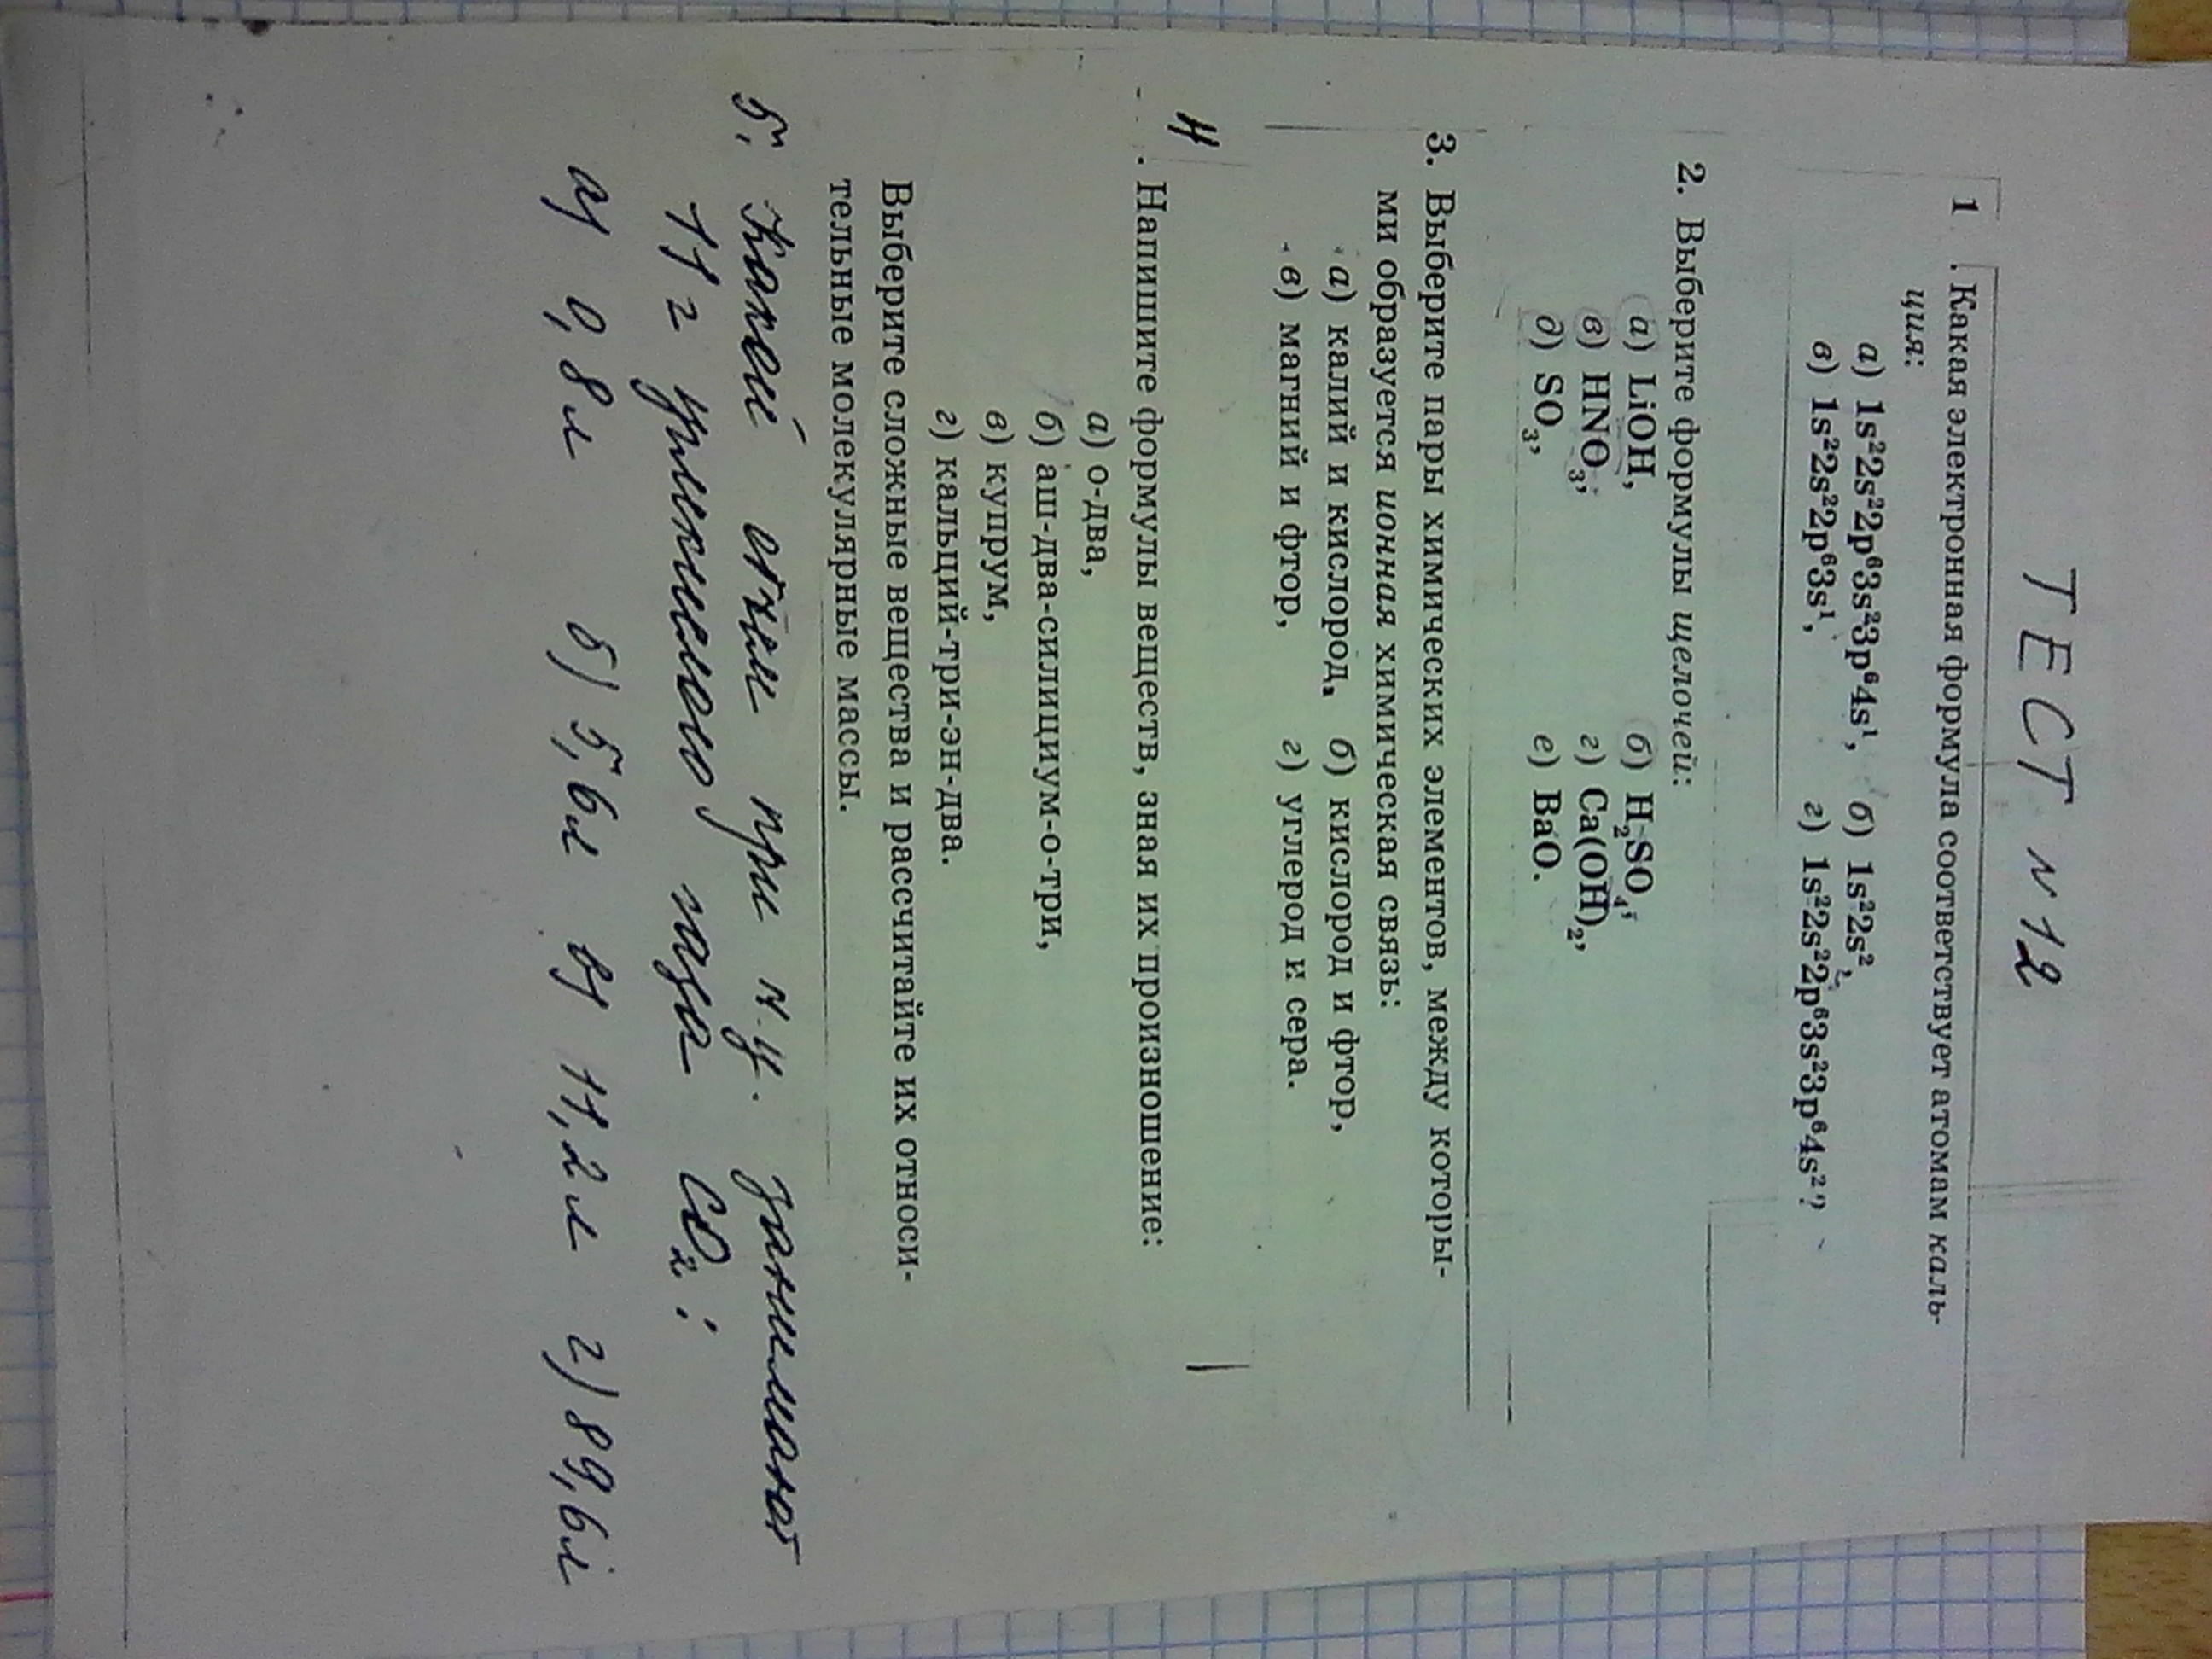 ТЕСТ №12
1. Какая электронная формула соответствует атомам каль-
ция:
а) 1s²2s²2p⁶3s²3p⁶4s¹, б) 1s²2s²,
в) 1s²2s²2p⁶3s¹, г) 1s²2s²2p⁶3s²3p⁶4s²?
2. Выберите формулы щелочей:
а) LiOH, б) H₂SO₄,
в) HNO₃, г) Ca(OH)₂,
д) SO₃, е) BaO.
3. Выберите пары химических элементов, между которы-
ми образуется ионная химическая связь:
а) калий и кислород, б) кислород и фтор,
в) магний и фтор, г) углерод и сера.
4. Напишите формулы веществ, зная их произношение:
а) о-два,
б) аш-два-силициум-о-три,
в) купрум,
г) кальций-три-эн-два.
Выберите сложные вещества и рассчитайте их относи-
тельные молекулярные массы.
5. Какой объем при н.у. занимают
11 г углекислого газа CO₂:
а) 0,8л б) 5,6л в) 11,2л г) 89,6л